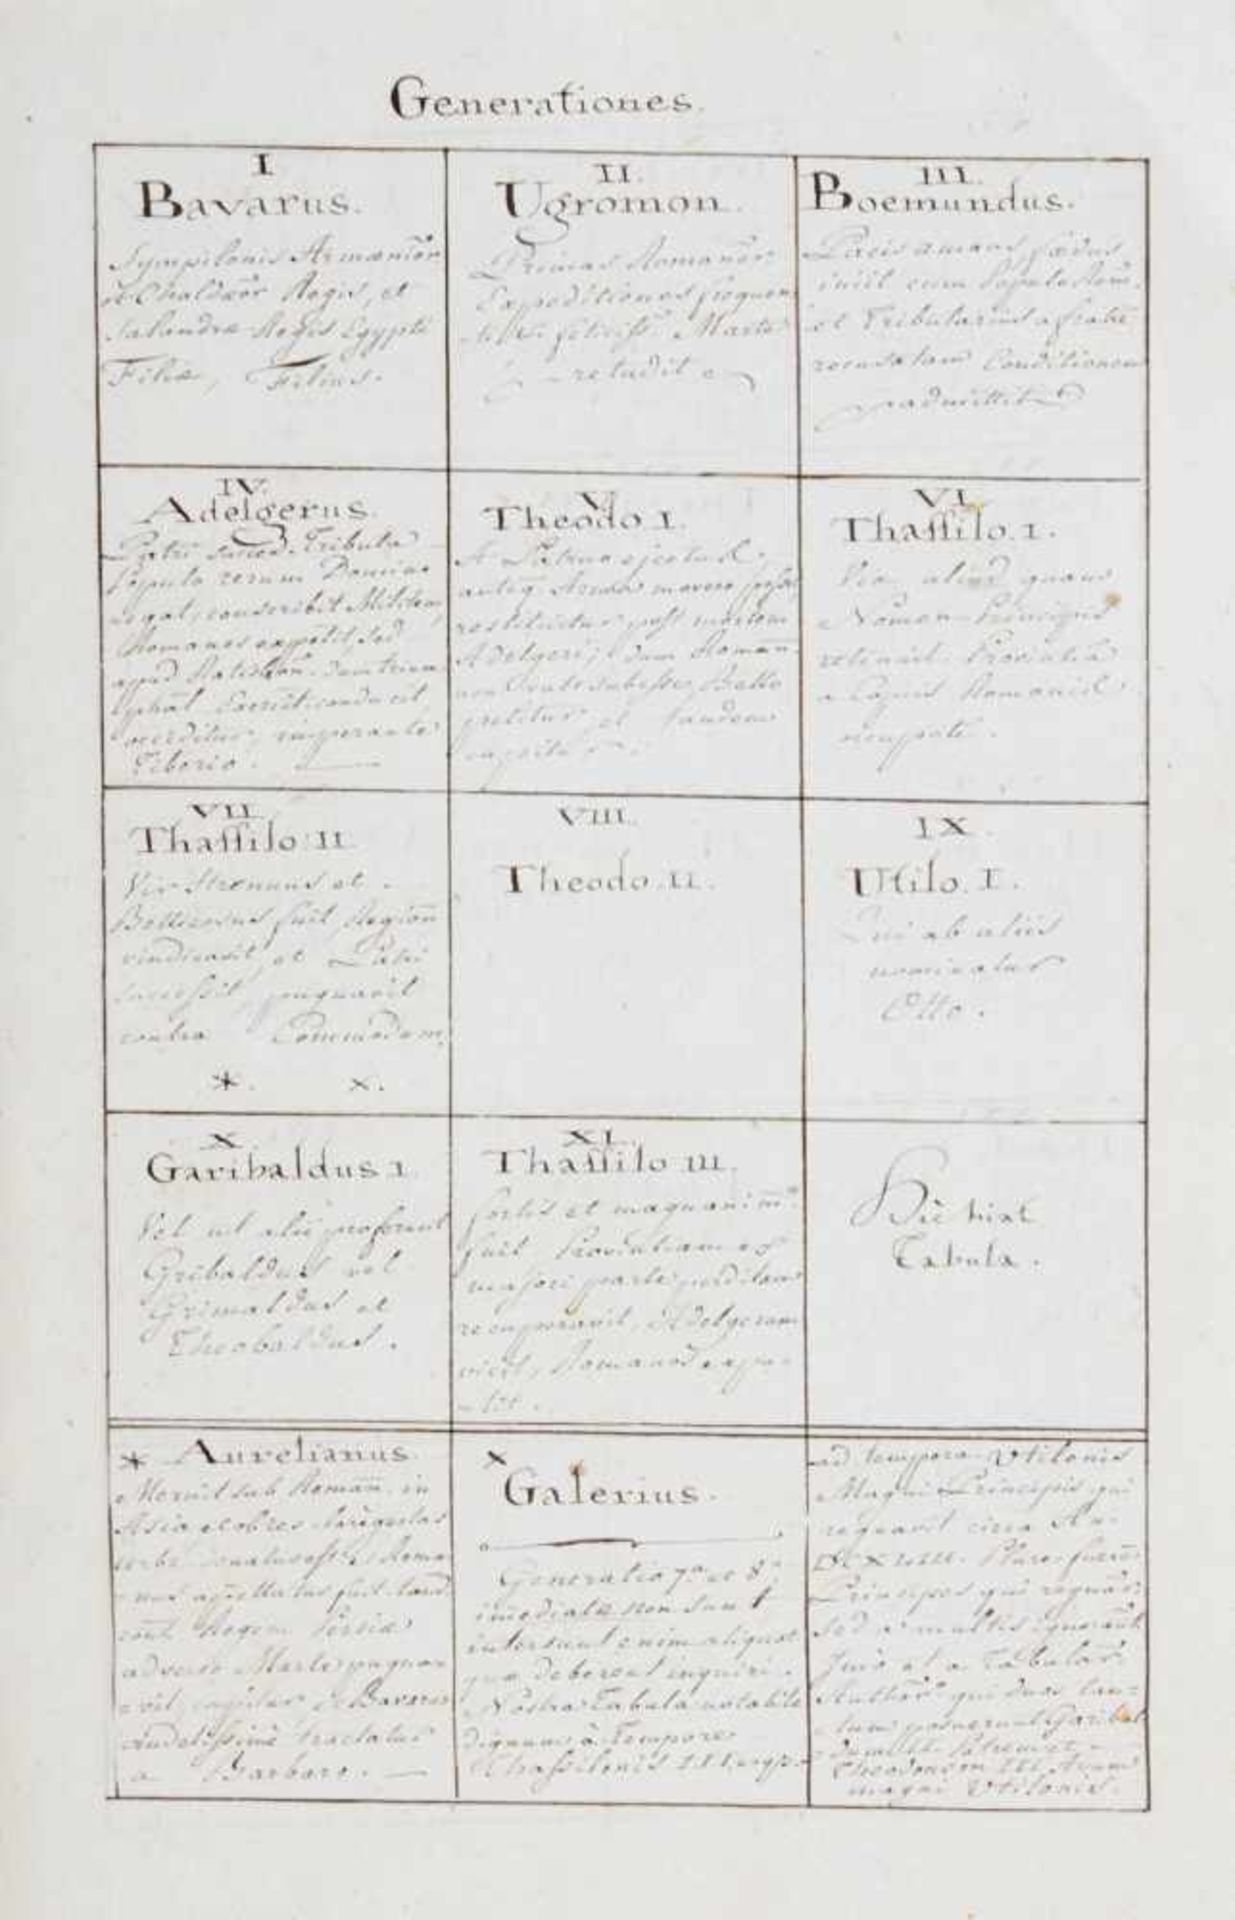 Generationes.
I
Bavarus.
Sympilonis Armenior
et Chaldæor Regis, et
Salandræ Regis Egypti
Filiæ, Filius.
II.
Ugromon.
Primas Romanor
Expeditiones frequen
Marte
retudit
III.
Boemundus.
Pacis amans, fœdus
iniit cum Populo Rom.
et Tributarius a fratre
recusatam Conditionem
admittit
IV.
Adelgerus.
Patri Tributa
Populo rerum Domino
negat, conscribit Militem,
Romanos expetit, sed
apud Ratisbon. dum trium
phat
occiditur, imperante
Tiberio.
V
Theodo I.
A Patruo ejectus
Arma movere
restituitur post mortem
Adelgeri, dum Roman
subesse, Bello
petitur et tandem
VI
Thassilo I.
Vix aliud quam
Nomen Principis
retinuit Provintia
a Copiis Romanis
occupata.
VII
Thassilo II
Vir strenuus et
Bellicosus fuit Region
vindicavit, et Patri
successit, pugnavit
contra Commodum,
*. x.
VIII.
Theodo II.
IX
Utilo I.
Qui ab aliis
nominatur
Otto.
X
Garibaldus I
Vel ut alii proferunt
Gribaldus vel
Grimaldus et
Theobaldus.
XI.
Thassilo III.
fortis et magnanim
fuit Provintiam ex
majori parte perditam
recuperavit, Adelgerum
vicit, Romanos expu-
lit.
Hic hiat
Tabula.
* Aurelianus
Meruit sub Roman. in
Asia et obres singulas
Roma
nus appellatus fuit tand
cont Regem Persiæ
adverso Marte pugna
vit, capitur et Bavarus
crudelissime tractatus
a Barbaro.
x
Galerius.
Generatio 7a et 8a
imediatæ non sunt
intersunt enim aliquot
quæ deberent inquiri.
Nostra Tabula notabile
dignum à Tempore
Thassilonis III.
ad tempora Utilonis
Magni Principis qui
regnavit circa An.
Plures fuere
Principes qui regnar
sed a multis ignorant
Imo et a Tabular
Author qui duos tan-
tum posuerunt Garibal
dum II. Patrem et
Theodonem III Avum
magni Utilonis.